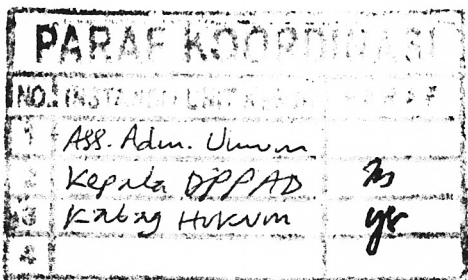 PARAF KOORDINASI
NO. INSTANSI / UNIT KERJA PARAF
1 Ass. Adm. Umum
2 Kepala DPPAD
3 Kabag Hukum
4